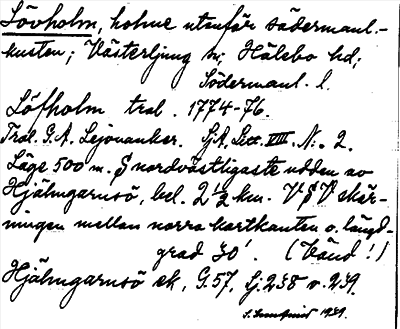 Lövholm, holme utanför södermanl.-
kusten; Västerljung sn; Hölebo hd;
Södermanl. l.
Löfholm tral. 1774-76.
Tral. G.A. Lejonanker. Sj.A. Litt. VIII. N:o 2.
Läge 500 m. S nordvästligaste udden av
Hjälmgarnsö, bel. 2 1/2 km. VSV skär-
ningen mellan norra kartkanten o. längd-
grad 30'. (Vänd!)
Hjälmgarnsö ek, G.57, Lj 238 o. 239.
1931.